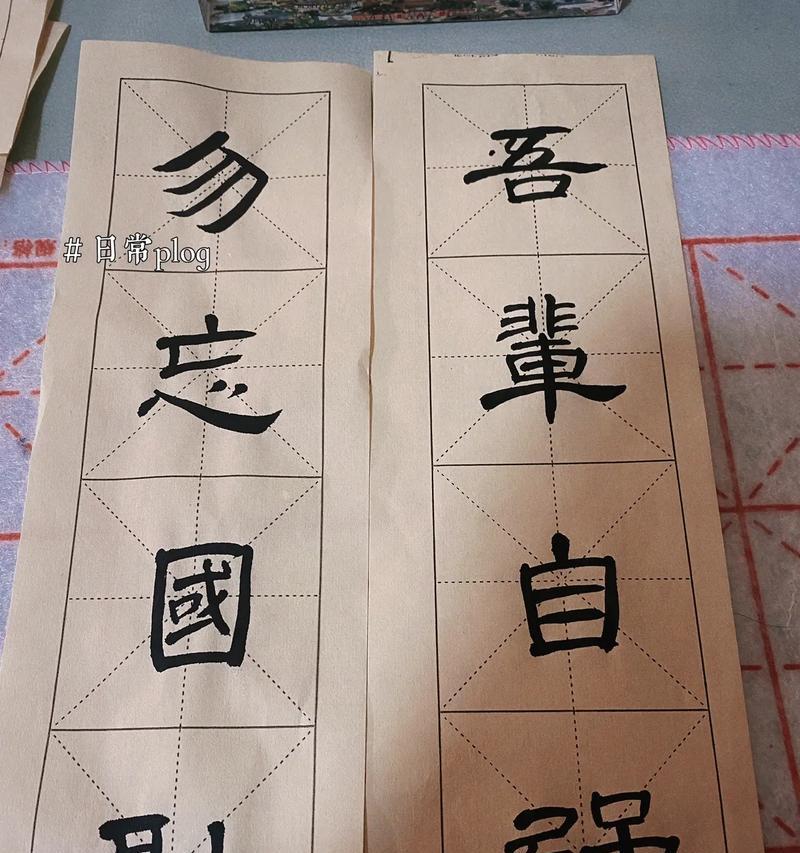 吾輩自強
勿忘國
# 日常plog